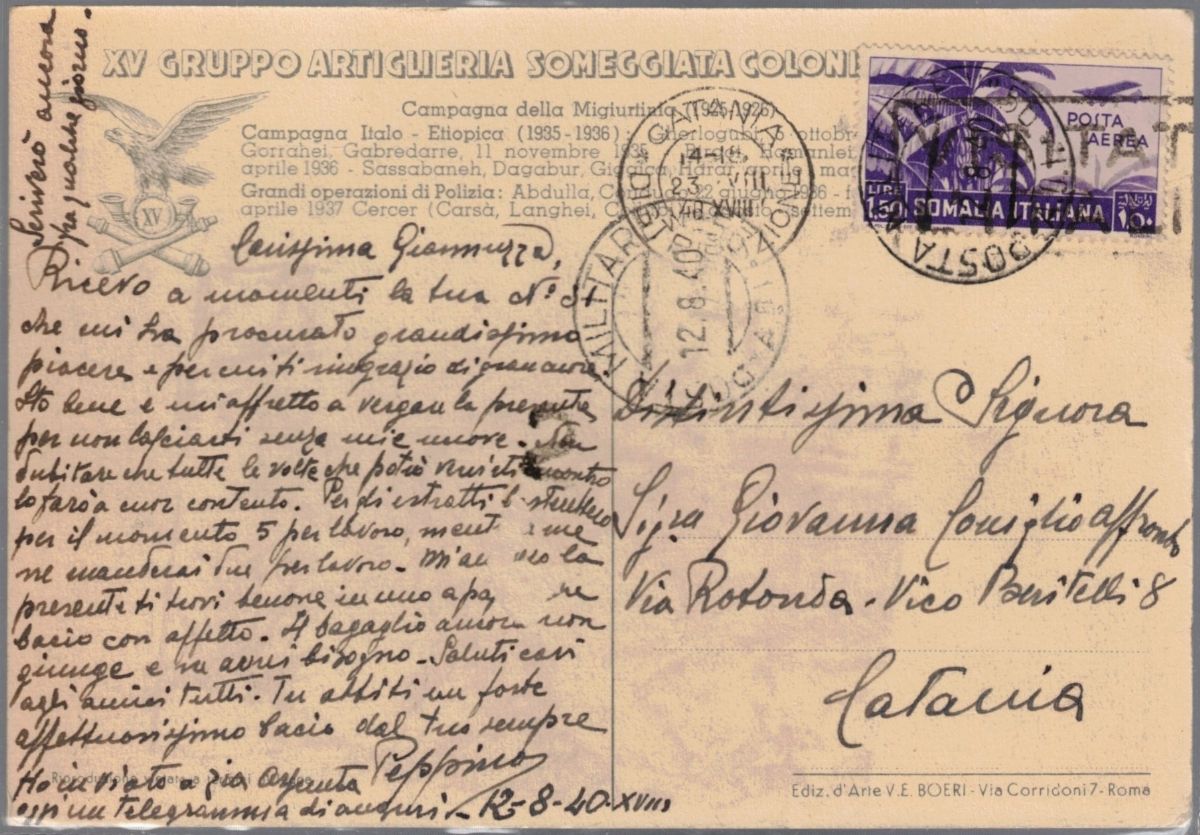 Scriverò ancora
fra qualche giorno.
XV GRUPPO ARTIGLIERIA SOMEGGIATA COLONI
Campagna della Migiurtinia (1925-1926)
Campagna Italo - Etiopica (1935-1936) : Gherlogubi 5 ottobre
Gorrahei, Gabredarre, 11 novembre 1935 Hamanlei,
aprile 1936 - Sassabaneh, Dagabur, Giggiga, Harar, aprile mag
Grandi operazioni di Polizia : Abdulla, 22 giugno 1936 - fe
aprile 1937 Cercer (Carsà, Langhei, settem
XV
POSTA
AEREA
LIRE
1.50
SOMALIA ITALIANA
POSTA MILITARE
12.8.40
CATANIA
23 VIII
40 XVIII
Carissima Giannuzza,
Ricevo a momenti la tua N° 31
che mi ha procurato grandissimo
piacere e per cui ti ringrazio di gran cuore.
Sto bene e mi affretto a vergare la presente
per non lasciarti senza mie nuove. Non
dubitare che tutte le volte che potrò venirti incontro
lo farò a cuor contento.
per il momento 5 per lavoro,
ne manderai due per lavoro.
presente ti trovi
bacio con affetto. Il bagaglio ancora non
giunge e ne avrei bisogno. Saluti cari
agli amici tutti. Tu abbiti un forte
affettuosissimo bacio dal tuo sempre
Peppino
Ho inviato a zia Assunta
oggi un telegramma di auguri. 12-8-40-XVIII
Distintissima Signora
Sig.ra Giovanna Coniglio Affronto
Via Rotonda - Vico Beritelli 8
Catania
Riproduzione vietata a
Ediz. d'Arte V. E. BOERI - Via Corridoni 7 - Roma